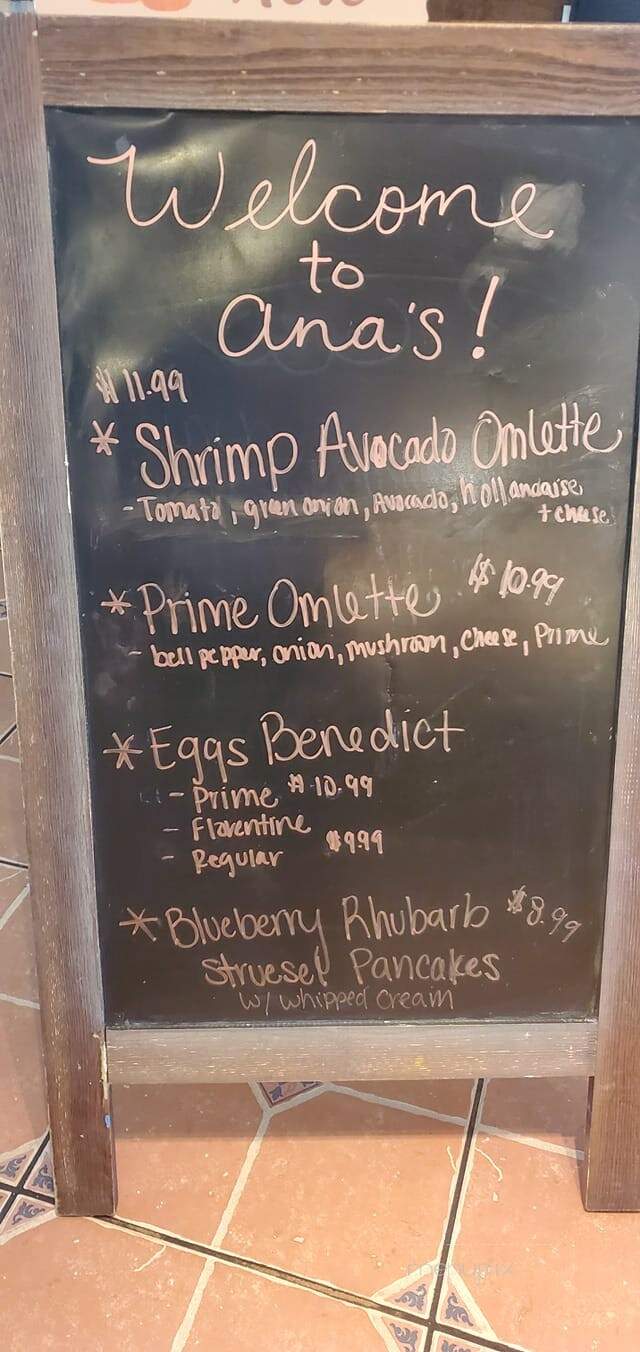 Welcome
to
ana's!
$11.99
* Shrimp Avocado Omlette
- Tomato, green onion, Avocado, hollandaise,
+ cheese
* Prime Omlette $10.99
- bell pepper, onion, mushroom, cheese, Prime
* Eggs Benedict
- Prime $10.99
- Florentine
- Regular $9.99
* Blueberry Rhubarb $8.99
Struesel Pancakes
w/ whipped cream